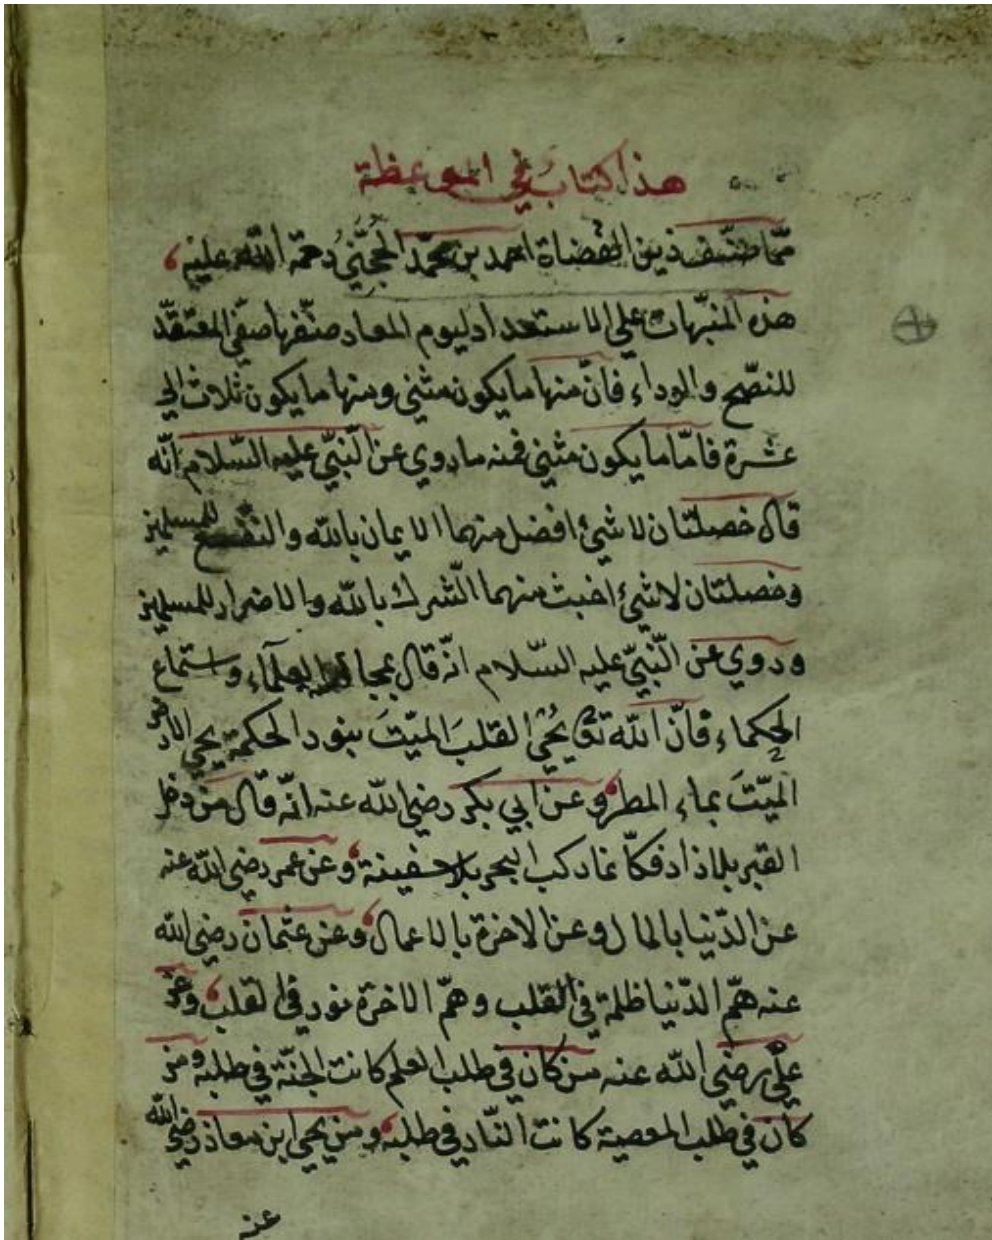 هذا كتاب في الموعظة
مما صنّف زين القضاة احمد بن محمّد الحجّيّ رحمة اللّه عليه
هذه المنبّهات على الاستعداد ليوم المعاد صنّفها صفي المعتقد
للنصّح والوداء فانّ منها ما يكون مثنى ومنها ما يكون ثلاث الى
عشرة فامّا ما يكون مثنى فمنه ما روي عن النّبيّ عليه السّلام انّه
قال خصلتان لا شيئ افضل منهما الايمان باللّه والنّفع للمسلمين
وخصلتان لا شيئ اخبث منهما الشّرك باللّه والاضرار للمسلمين
وروي عن النّبيّ عليه السّلام انّه قال العلماء واستماع
الحكماء فانّ اللّه تعا يُحْيي القلبَ الميّتَ بنور الحكمة يحيي الارض
الميّتَ بماء المطر وعن ابي بكر رضي اللّه عنه انّه قال من دخل
القبر بلا زاد فكاّنما ركب البحر بلا سفينة وعن عمر رضي اللّه عنه
عزّ الدّنيا بالمال وعزّ الاخرة بالاعمال وعن عثمان رضي اللّه
عنه همّ الدّنيا ظلمة في القلب وهمّ الاخرة نور في القلب وعن
عليّ رضي اللّه عنه من كان في طلب العلم كانت الجنّة في طلبه ومن
كان في طلب المعصية كانت النّار في طلبه ومن يحيي ابن معاذ رضي اللّه
عنه